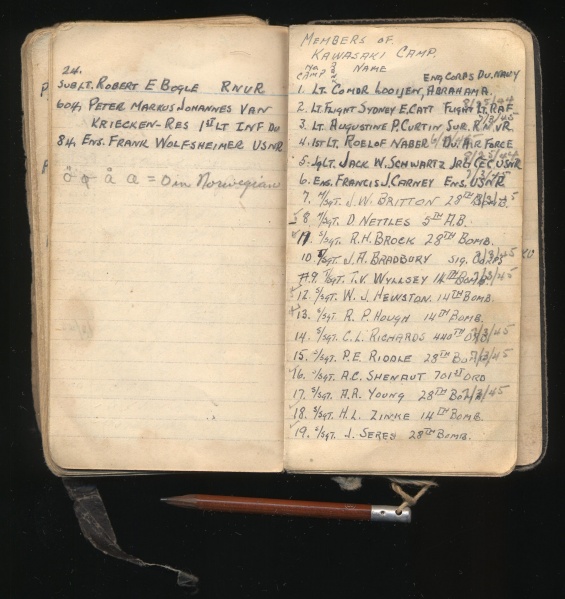 24.
SUB LT. ROBERT E BOGLE RNVR
604, PETER MARKUS JOHANNES VAN
KRIECKEN-RES 1ST LT INF DU
84, ENS. FRANK WOLFSHEIMER USNR
= O in Norwegian
MEMBERS OF
KAWASAKI CAMP.
NO. NAME
CAMP ENG CORPS DU. NAVY
1. LT COMDR LOOIJEN, ABRAHAMA.
2. LT FLIGHT SYDNEY E. CATT FLIGHT LT. RAF
3. LT. AUGUSTINE P. CURTIN SUR. R.N.VR
4. 1ST LT. ROELOF NABER DU. AIR FORCE
5. JGLT. JACK W. SCHWARTZ CEC USNR
6. ENS. FRANCIS J. CARNEY ENS. USNR
7. M/SGT. J.W. BRITTON 28TH BOMB.
8 M/SGT. D. NETTLES 5TH A.B.
11. S/SGT. R.H. BROCK 28TH BOMB.
10 J.A. BRADBURY SIG. CORPS
9. T/SGT. T.V. WYLLSEY 14TH BOMB
12. S/SGT. W.J. HEWSTON. 14TH BOMB.
13. S/SGT R.P. HOUGH 14TH BOMB.
14. S/SGT. C.L. RICHARDS 440TH ORD 45
15. S/SGT. P.E. RIDDLE 28TH
16. S/SGT. A.C. SHENAUT 701ST ORD
17. S/SGT. A.R. YOUNG 28TH 45
18. S/SGT. H.L. ZINKE 14TH BOMB.
19. S/SGT. J. SEREY 28TH BOMB.